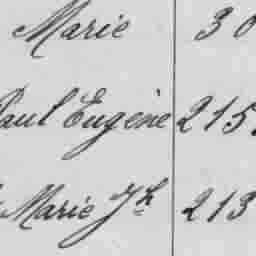 Marie 30
Paul Eugène 215
Marie Jh 213